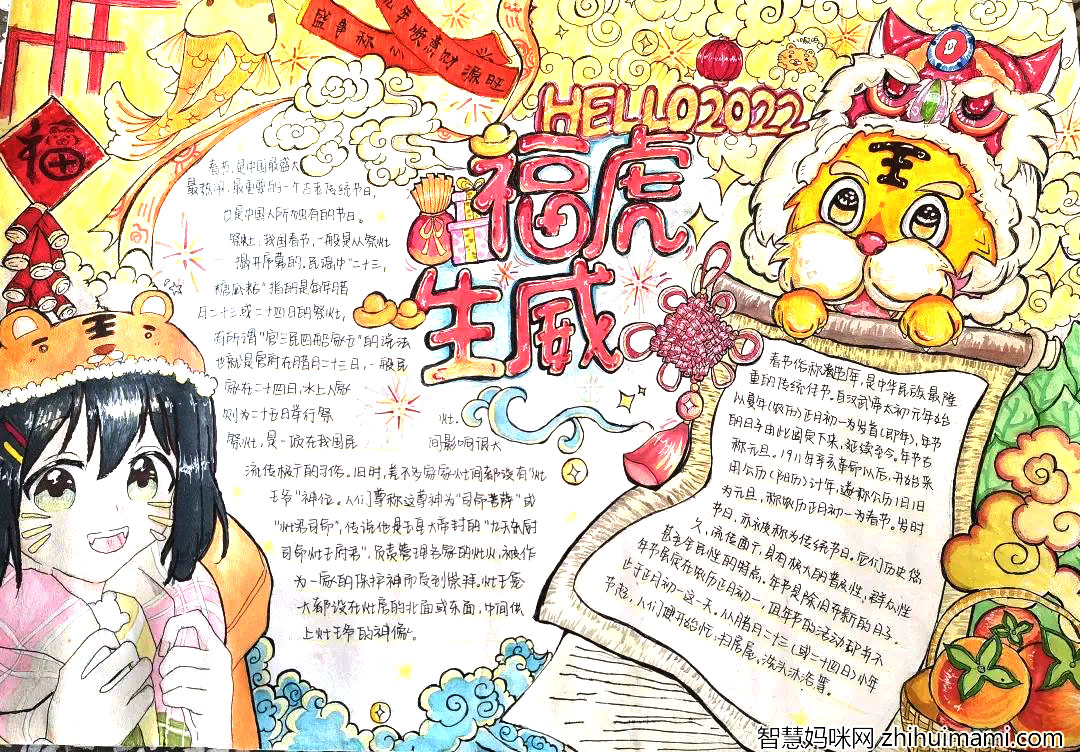 虎年顺意财源旺
盛事称心
HELLO2022
福虎
生威
福
王
王
春节,是中国最盛大
最热闹,最重要的一个古老传统节日,
也是中国人所独有的节日。
祭灶,我国春节,一般是从祭灶
揭开序幕的。民谣中"二十三,
糖瓜粘"指的是每年腊
月二十三或二十四日的祭灶,
有所谓"官三民四船家五"的说法
也就是官府在腊月二十三日,一般民
家在二十四日,水上人家
则为二十五日举行祭 灶。
祭灶,是一项在我国民 间影响很大
流传极广的习俗。旧时,差不多家家灶间都设有"灶
王爷"神位。人们尊称这尊神为"司命菩萨"或
"灶君司命",传说他是玉皇大帝封的"九天东厨
司命灶王府君",负责管理各家的灶火,被作
为一家的保护神而受到崇拜。灶王龛
大都设在灶房的北面或东面,中间供
上灶王爷的神像。
春节俗称过年,是中华民族最隆
重的传统佳节。自汉武帝太初元年始
以夏年(农历)正月初一为岁首(即年),年节
的日子由此固定下来,延续至今。年节古
称元旦。1911年辛亥革命以后,开始采
用公历(阳历)计年,遂称公历1月1日
为元旦,称农历正月初一为春节。岁时
节日,亦被称为传统节日。它们历史悠
久、流传面广,具有极大的普及性、群众性
甚至全民性的特点。年节是除旧布新的日子。
年节虽定在农历正月初一,但年节的活动却并不
止于正月初一这一天。从腊月二十三(或二十四日)小年
节起,人们便开始忙:扫房屋、洗头沐浴等。
智慧妈咪网 zhihuimami.com